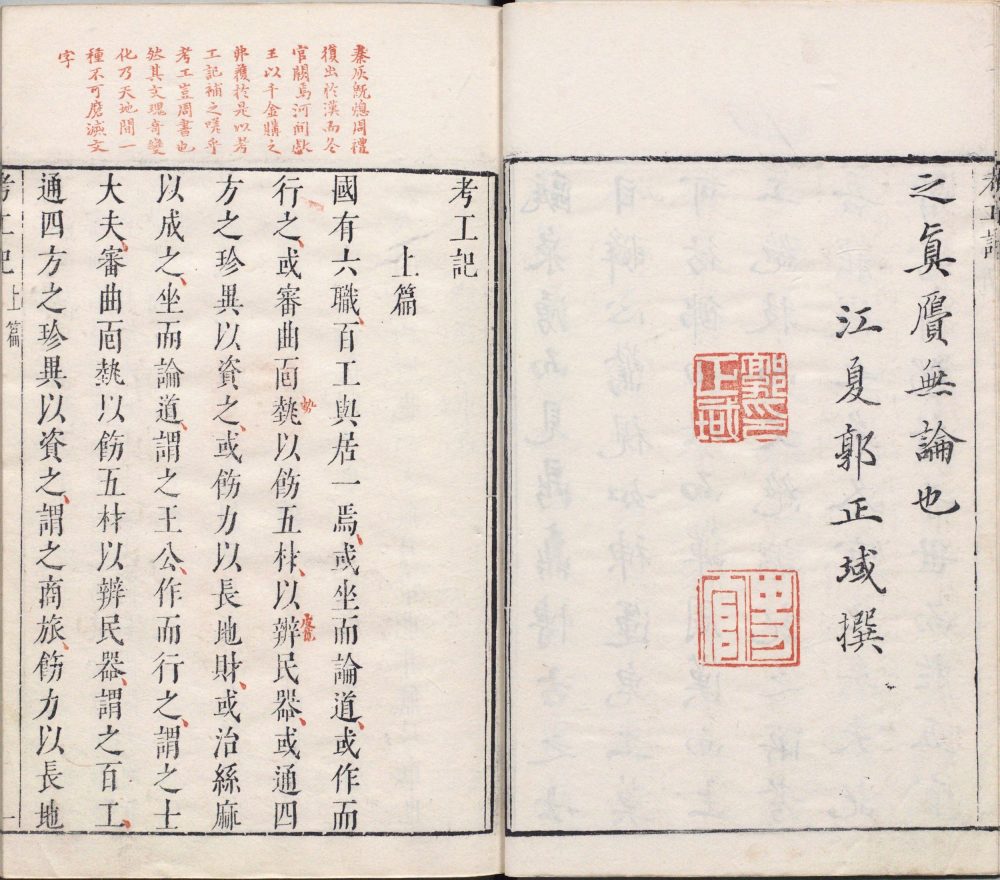 之眞贗無論也
江夏郭正域撰
郭正域印
史官
考工記
秦灰旣熄周禮
復出於漢而冬
官闕焉河間獻
王以千金購之
弗獲於是以考
工記補之嗟乎
考工豈周書也
然其文瑰奇變
化乃天地間一
種不可磨滅文
字
考工記
上篇
國有六職百工與居一焉或坐而論道或作而
行之或審曲面埶以飭五材以辨民器或通四
方之珍異以資之或飭力以長地財或治絲麻
以成之坐而論道謂之王公作而行之謂之士
大夫審曲面埶以飭五材以辨民器謂之百工
通四方之珍異以資之謂之商旅飭力以長地
勢
考工記
上篇
一